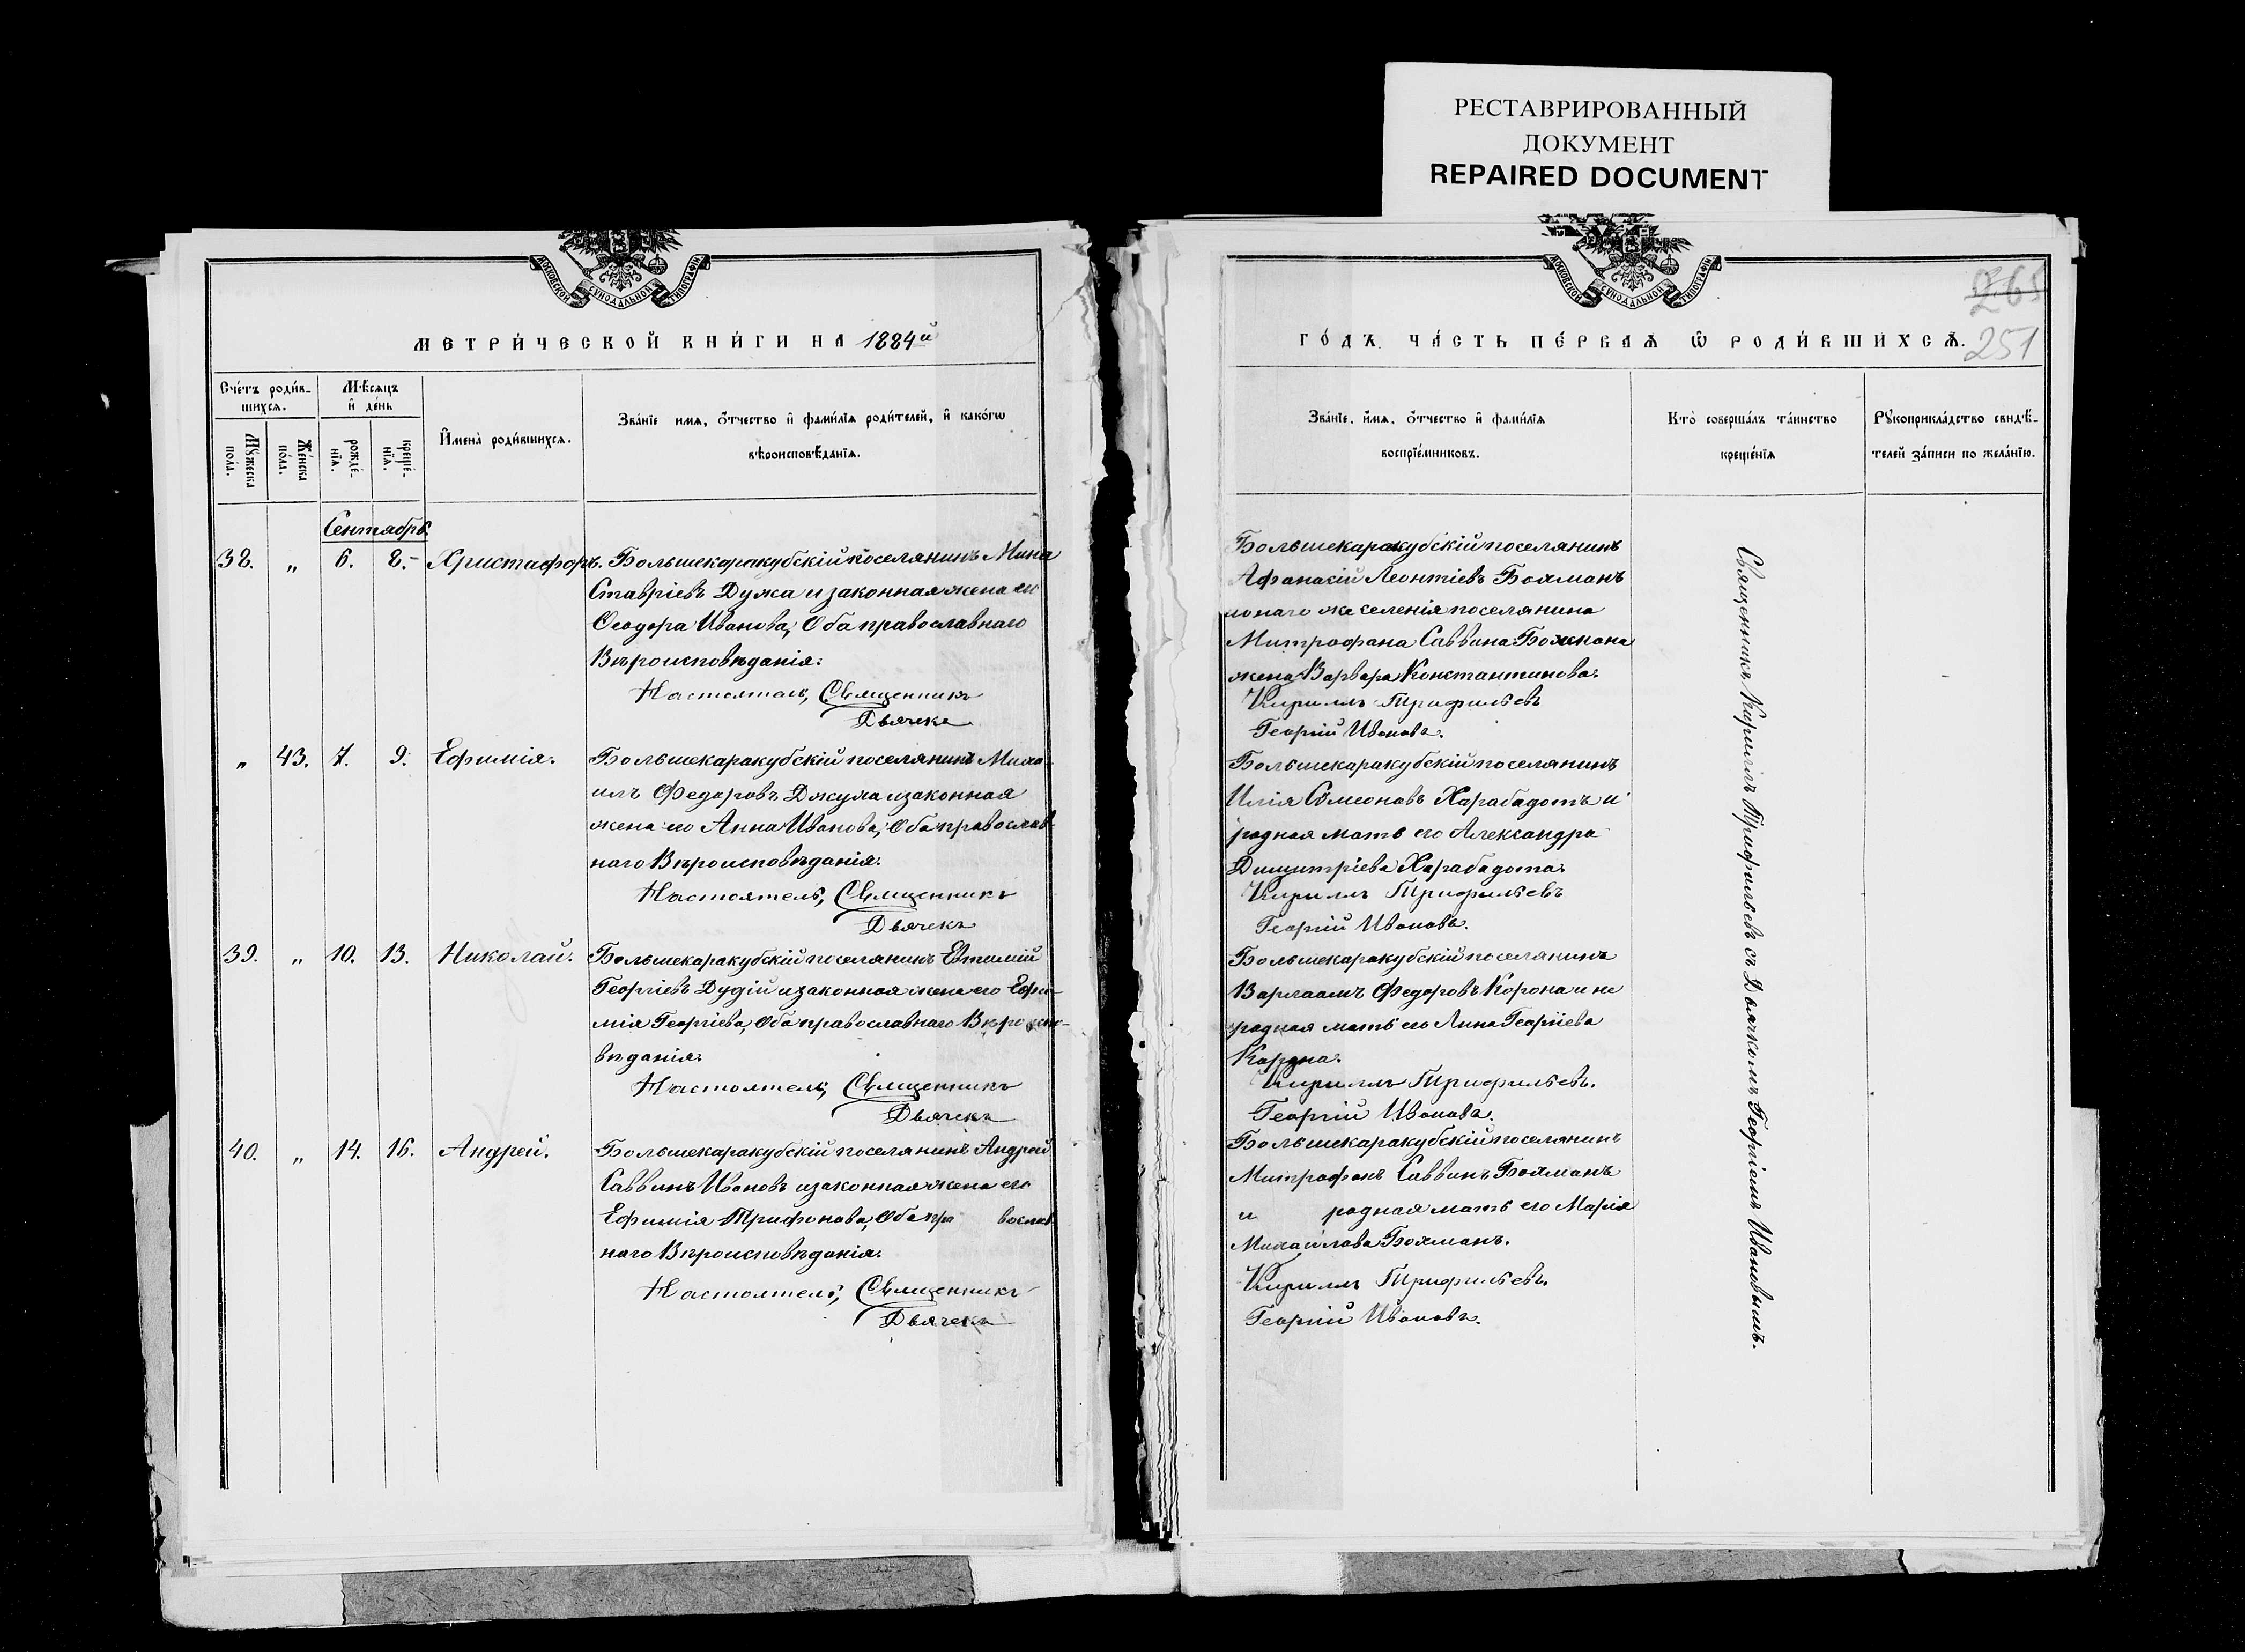 РЕСТАВРИРОВАННЫЙ
ДОКУМЕНТ
REPAIRED DOCUMENT
МОСКОВСКОЙ СѴНОДАЛЬНОЙ ТИПОГРАФІИ
МЕТРИ́ЧЕСКОЙ КНИ́ГИ НА 1884й
Сче́тъ роди́в-
шихся.
Мѣсяцъ
и де́нь
Мꙋжеска
пола.
Же́нска
по́ла.
рожде́-
нїя.
креще́-
нїя.
Имена̀ роди́вшихся.
Зва́нїе имя, о́тчество и фами́лїя роди́телей, и како́гѡ
вѣроисповѣ́данїя.
Сентябрь
38. „ 6. 8.- Христафоръ. Большекаракубскій поселянинъ Мина
Ставріевъ Дужа и законная жена его
Ѳеодора Иванова, Оба православнаго
Вѣроисповѣданія.
Настоятель, Священникъ
Дьячекъ
„ 43. 7. 9. Ефимія. Большекаракубскій поселянинъ Миха-
илъ Федоровъ Джужа и законная
жена его Анна Иванова, Оба православ-
наго Вѣроисповѣданія.
Настоятель, Священникъ
Дьячекъ
39. „ 10. 13. Николай. Большекаракубскій поселянинъ Евтимій
Георгіевъ Дудій и законная жена его Ефи-
мія Георгіева, Оба православнаго Вѣроиспо-
вѣданія.
Настоятель, Священникъ
Дьячекъ
40. „ 14. 16. Андрей. Большекаракубскій поселянинъ Андрей
Саввинъ Ивановъ и законная жена его
Ефимія Трифонова, Оба пра вослав-
наго Вѣроисповѣданія.
Настоятель, Священникъ
Дьячекъ
МОСКОВСКОЙ СѴНОДАЛЬНОЙ ТИПОГРАФІИ
265
ГО́ДЪ. ЧА́СТЬ ПЕ́РВАЯ Ѡ РОДИ́ВШИХСЯ. 251
Зва́нїе, и́мя, о́тчество и фами́лїя
воспрїе́мниковъ.
Кто̀ соверша́лъ та́инство
креще́нїя
Рꙋкоприкла́дство свидѣ́-
телей за́писи по жела́нїю.
Большекаракубскій поселянинъ
Афанасій Леонтіевъ Бохманъ
и онаго же селенія поселянина
Митрофана Саввина Бохмана
жена Варвара Константинова.
Кириллъ Трифильевъ
Георгій Ивановъ.
Большекаракубскій поселянинъ
Илія Сѵмеоновъ Харабадотъ и
родная мать его Александра
Димитріева Харабадота.
Кириллъ Трифильевъ
Георгій Ивановъ.
Большекаракубскій поселянинъ
Варлаамъ Федоровъ Корона и не
родная мать его Анна Георгіева
Корона.
Кириллъ Трифильевъ.
Георгій Ивановъ.
Большекаракубскій поселянинъ
Митрофанъ Саввинъ Бохманъ
и родная мать его Марія
Михайлова Бохманъ.
Кириллъ Трифильевъ.
Георгій Ивановъ.
Священникъ Кириллъ Трифильевъ съ Дьячкомъ Георгіемъ Ивановымъ.